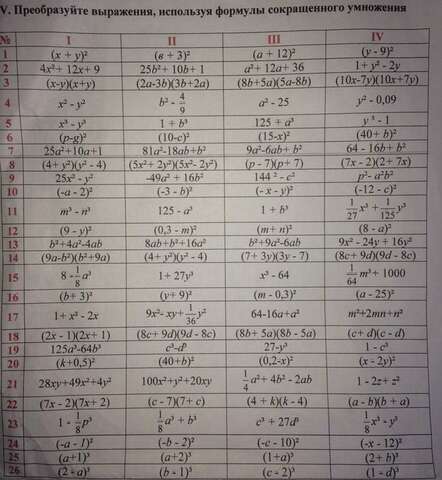 V. Преобразуйте выражения, используя формулы сокращенного умножения
№ I II III IV
1 (x + y)² (в + 3)² (a + 12)² (y - 9)²
2 4x²+ 12x+ 9 25b²+ 10b+ 1 a²+ 12a+ 36 1+ y²- 2y
3 (x-y)(x+y) (2a-3b)(3b+2a) (8b+5a)(5a-8b) (10x-7y)(10x+7y)
4 x² - y² b² - 4/9 a² - 25 y² - 0,09
5 x³ - y³ 1 + b³ 125 + a³ y³ - 1
6 (p-g)² (10-c)² (15-x)² (40+ b)²
7 25a²+10a+1 81a²-18ab+b² 9a²-6ab+ b² 64 - 16b+ b²
8 (4+ y²)(y² - 4) (5x²+ 2y²)(5x²- 2y²) (p - 7)(p+ 7) (7x - 2)(2+ 7x)
9 25x² - y² -49a² + 16b² 144² - c² p²- a²b²
10 (-a - 2)² (-3 - b)² (- x - y)² (-12 - c)²
11 m³ - n³ 125 - a³ 1 + b³ 1/27 x³ + 1/125 y³
12 (9 - y)² (0,3 - m)² (m+ n)² (8 - a)²
13 b²+4a²-4ab 8ab+b²+16a² b²+9a²-6ab 9x² - 24y + 16y²
14 (9a-b²)(b²+9a) (4+ y²)(y² - 4) (7+ 3y)(3y - 7) (8c+ 9d)(9d - 8c)
15 8 - 1/8 a³ 1+ 27y³ x³ - 64 1/64 m³ + 1000
16 (b+ 3)² (y+ 9)² (m - 0,3)² (a - 25)²
17 1+ x² - 2x 9x²- xy+ 1/36 y² 64-16a+a² m²+2mn+n²
18 (2x - 1)(2x+ 1) (8c+ 9d)(9d - 8c) (8b+ 5a)(8b - 5a) (c+ d)(c - d)
19 125a³-64b³ c³-d³ 27-y³ 1 - c³
20 (k+0,5)² (40+b)² (0,2-x)² (x - 2y)²
21 28xy+49x²+4y² 100x²+y²+20xy 1/4 a²+ 4b² - 2ab 1 - 2z+ z²
22 (7x - 2)(7x+ 2) (c - 7)(7+ c) (4 + k)(k - 4) (a - b)(b + a)
23 1 - 1/8 p³ 1/8 a³ + b³ c³ + 27d³ 1/8 x³ - y³
24 (-a - 1)² (-b - 2)² (-c - 10)² (-x - 12)²
25 (a+1)³ (a+2)³ (1+a)³ (2+ b)³
26 (2 - a)³ (b - 1)³ (c - 2)³ (1 - d)³